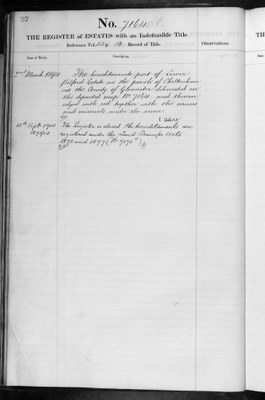 No. 7164
THE REGISTER of ESTATES with an Indefeasible Title.
Record of Title.
Observations
2nd March 1894
The hereditaments part of Lower
Estate in the parish of Cheltenham
in the County of Gloucester delineated on
the deposited map No. 7164 and thereon
edged with red together with the mines
and minerals under the same
Sept 1900
The Register is closed. The hereditaments are
registered under the Land Transfer Acts
1875 and 1897